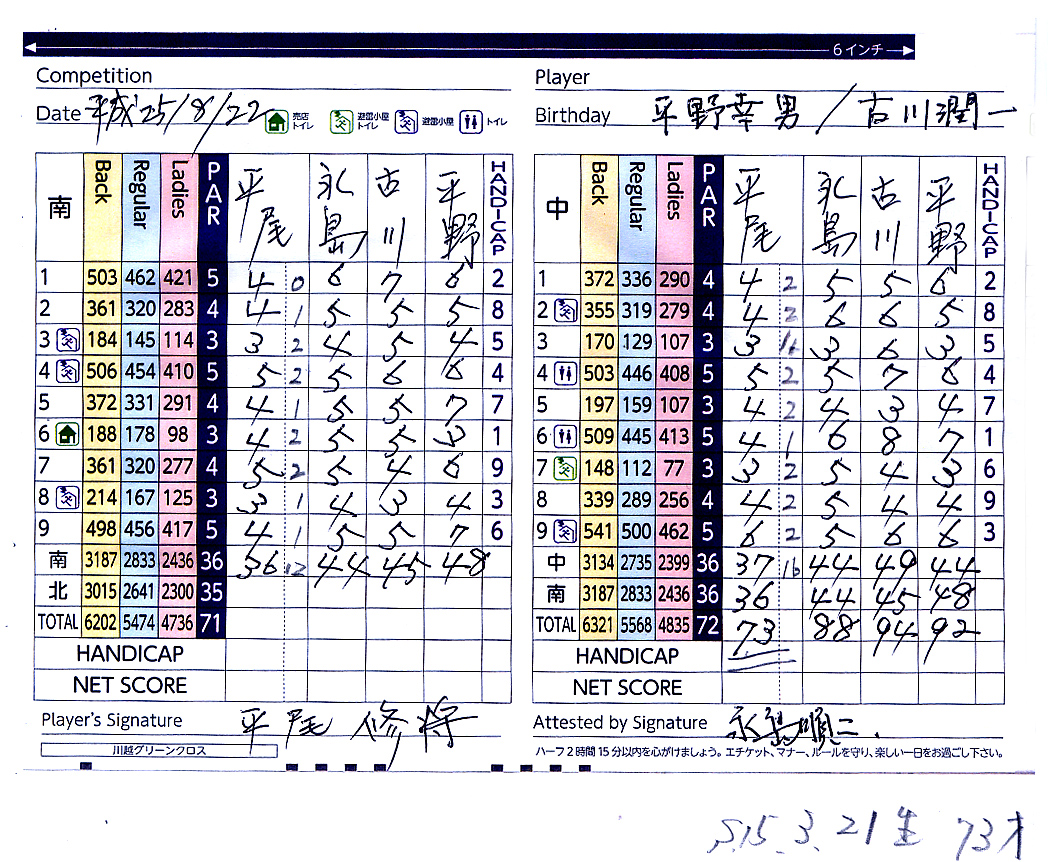 6インチ
Competition
Player
Date 平成25/8/22 売店 トイレ 避雷小屋 トイレ 避雷小屋 トイレ
Birthday 平野幸男/古川潤一
南 Back Regular Ladies PAR 平尾 永島 古川 平野 HANDICAP
1 503 462 421 5 4 0 6 7 6 2
2 361 320 283 4 4 1 5 5 5 8
3 184 145 114 3 3 2 4 5 4 5
4 506 454 410 5 5 2 5 6 6 4
5 372 331 291 4 4 1 5 5 7 7
6 188 178 98 3 4 2 5 5 3 1
7 361 320 277 4 5 2 5 4 6 9
8 214 167 125 3 3 1 4 3 4 3
9 498 456 417 5 4 1 5 5 7 6
南 3187 2833 2436 36 36 12 44 45 48
北 3015 2641 2300 35
TOTAL 6202 5474 4736 71
HANDICAP
NET SCORE
中 Back Regular Ladies PAR 平尾 永島 古川 平野 HANDICAP
1 372 336 290 4 4 2 5 5 6 2
2 355 319 279 4 4 2 6 6 5 8
3 170 129 107 3 3 3 6 3 5
4 503 446 408 5 5 2 5 7 6 4
5 197 159 107 3 4 2 4 3 4 7
6 509 445 413 5 4 1 6 8 7 1
7 148 112 77 3 3 2 5 4 3 6
8 339 289 256 4 4 2 5 4 4 9
9 541 500 462 5 6 2 5 6 6 3
中 3134 2735 2399 36 37 16 44 49 44
南 3187 2833 2436 36 36 44 45 48
TOTAL 6321 5568 4835 72 73 88 94 92
HANDICAP
NET SCORE
Player's Signature 平尾修將
Attested by Signature 永島順二.
川越グリーンクロス
ハーフ2時間15分以内を心がけましょう。エチケット、マナー、ルールを守り、楽しい一日をお過ごし下さい。
S15.3.21生 73才